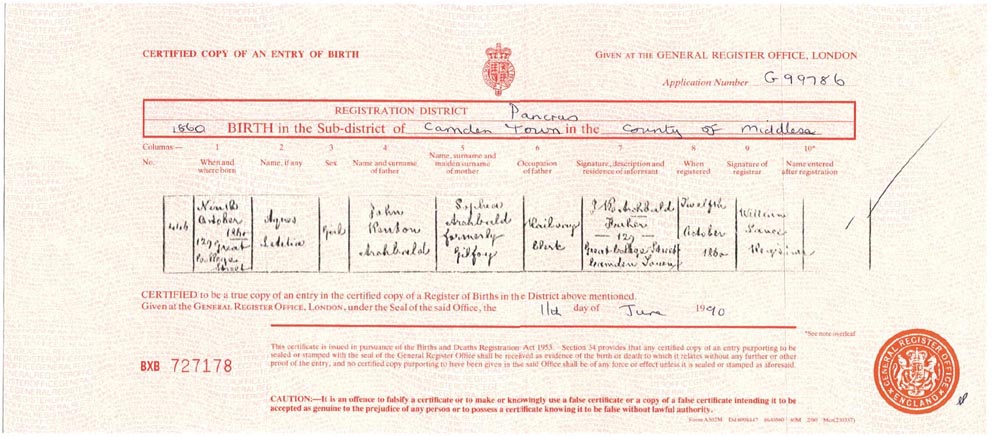 CERTIFIED COPY OF AN ENTRY OF BIRTH
GIVEN AT THE GENERAL REGISTER OFFICE, LONDON
Application Number G99786
REGISTRATION DISTRICT Pancras
1860 BIRTH in the Sub-district of Camden Town in the County of Middlesex
Columns:— 1 2 3 4 5 6 7 8 9 10*
No. When and where born Name, if any Sex Name and surname of father Name, surname and maiden surname of mother Occupation of father Signature, description and residence of informant When registered Signature of registrar Name entered after registration
446
Ninth
October
1860
129 Great
College
Street
Agnes
Letitia
Girl
John
Archibald
Sophia
Archibald
formerly
Railway
Clerk
Archibald
Father
129
Great College Street
Camden Town
Twelfth
October
1860
William
Registrar
CERTIFIED to be a true copy of an entry in the certified copy of a Register of Births in the District above mentioned.
Given at the GENERAL REGISTER OFFICE, LONDON, under the Seal of the said Office, the 11th day of June 1990
*See note overleaf
This certificate is issued in pursuance of the Births and Deaths Registration Act 1953. Section 34 provides that any certified copy of an entry purporting to be
sealed or stamped with the seal of the General Register Office shall be received as evidence of the birth or death to which it relates without any further or other
proof of the entry, and no certified copy purporting to have been given in the said Office shall be of any force or effect unless it is sealed or stamped as aforesaid.
BXB 727178
CAUTION:—It is an offence to falsify a certificate or to make or knowingly use a false certificate or a copy of a false certificate intending it to be
accepted as genuine to the prejudice of any person or to possess a certificate knowing it to be false without lawful authority.
GENERAL REGISTER OFFICE
ENGLAND